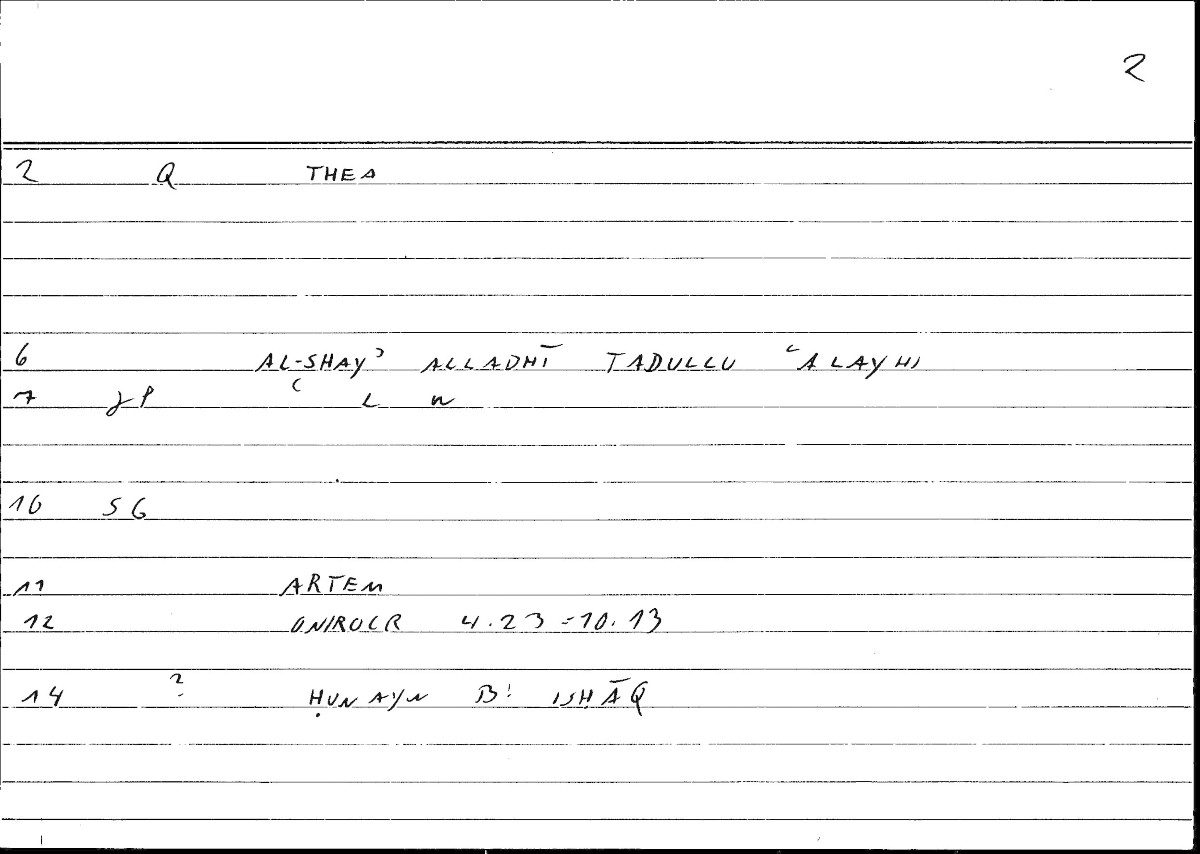 2
2 Q THEA
6 AL-SHAYʾ ALLADHĪ TADULLU ʿALAYHI
7 ʿ L W
10 SG
11 ARTEM
12 ONIROCR 4.23-10.13
14 ? ḤUNAYN B. ISḤĀQ